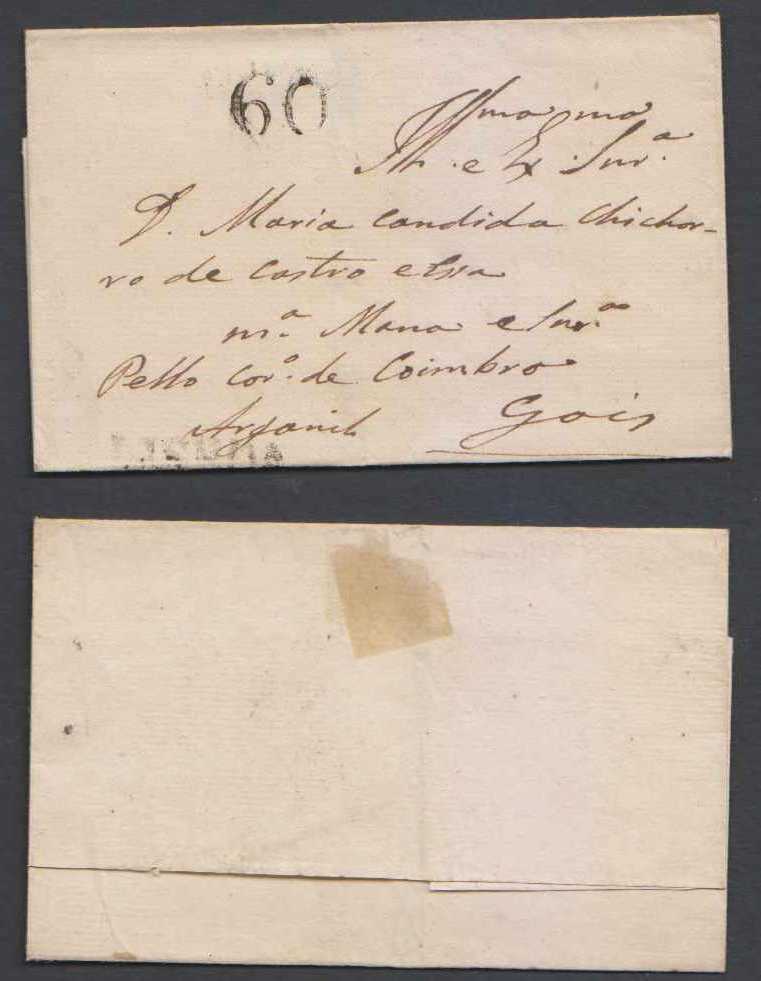 60
Ill.ma e Ex.ma Snr.ª
D. Maria Candida Chichor-
ro de Castro e Essa
m.ª Mana e Snr.ª
Pello Cor.º de Coimbra
Arganil Gois
LISBOA